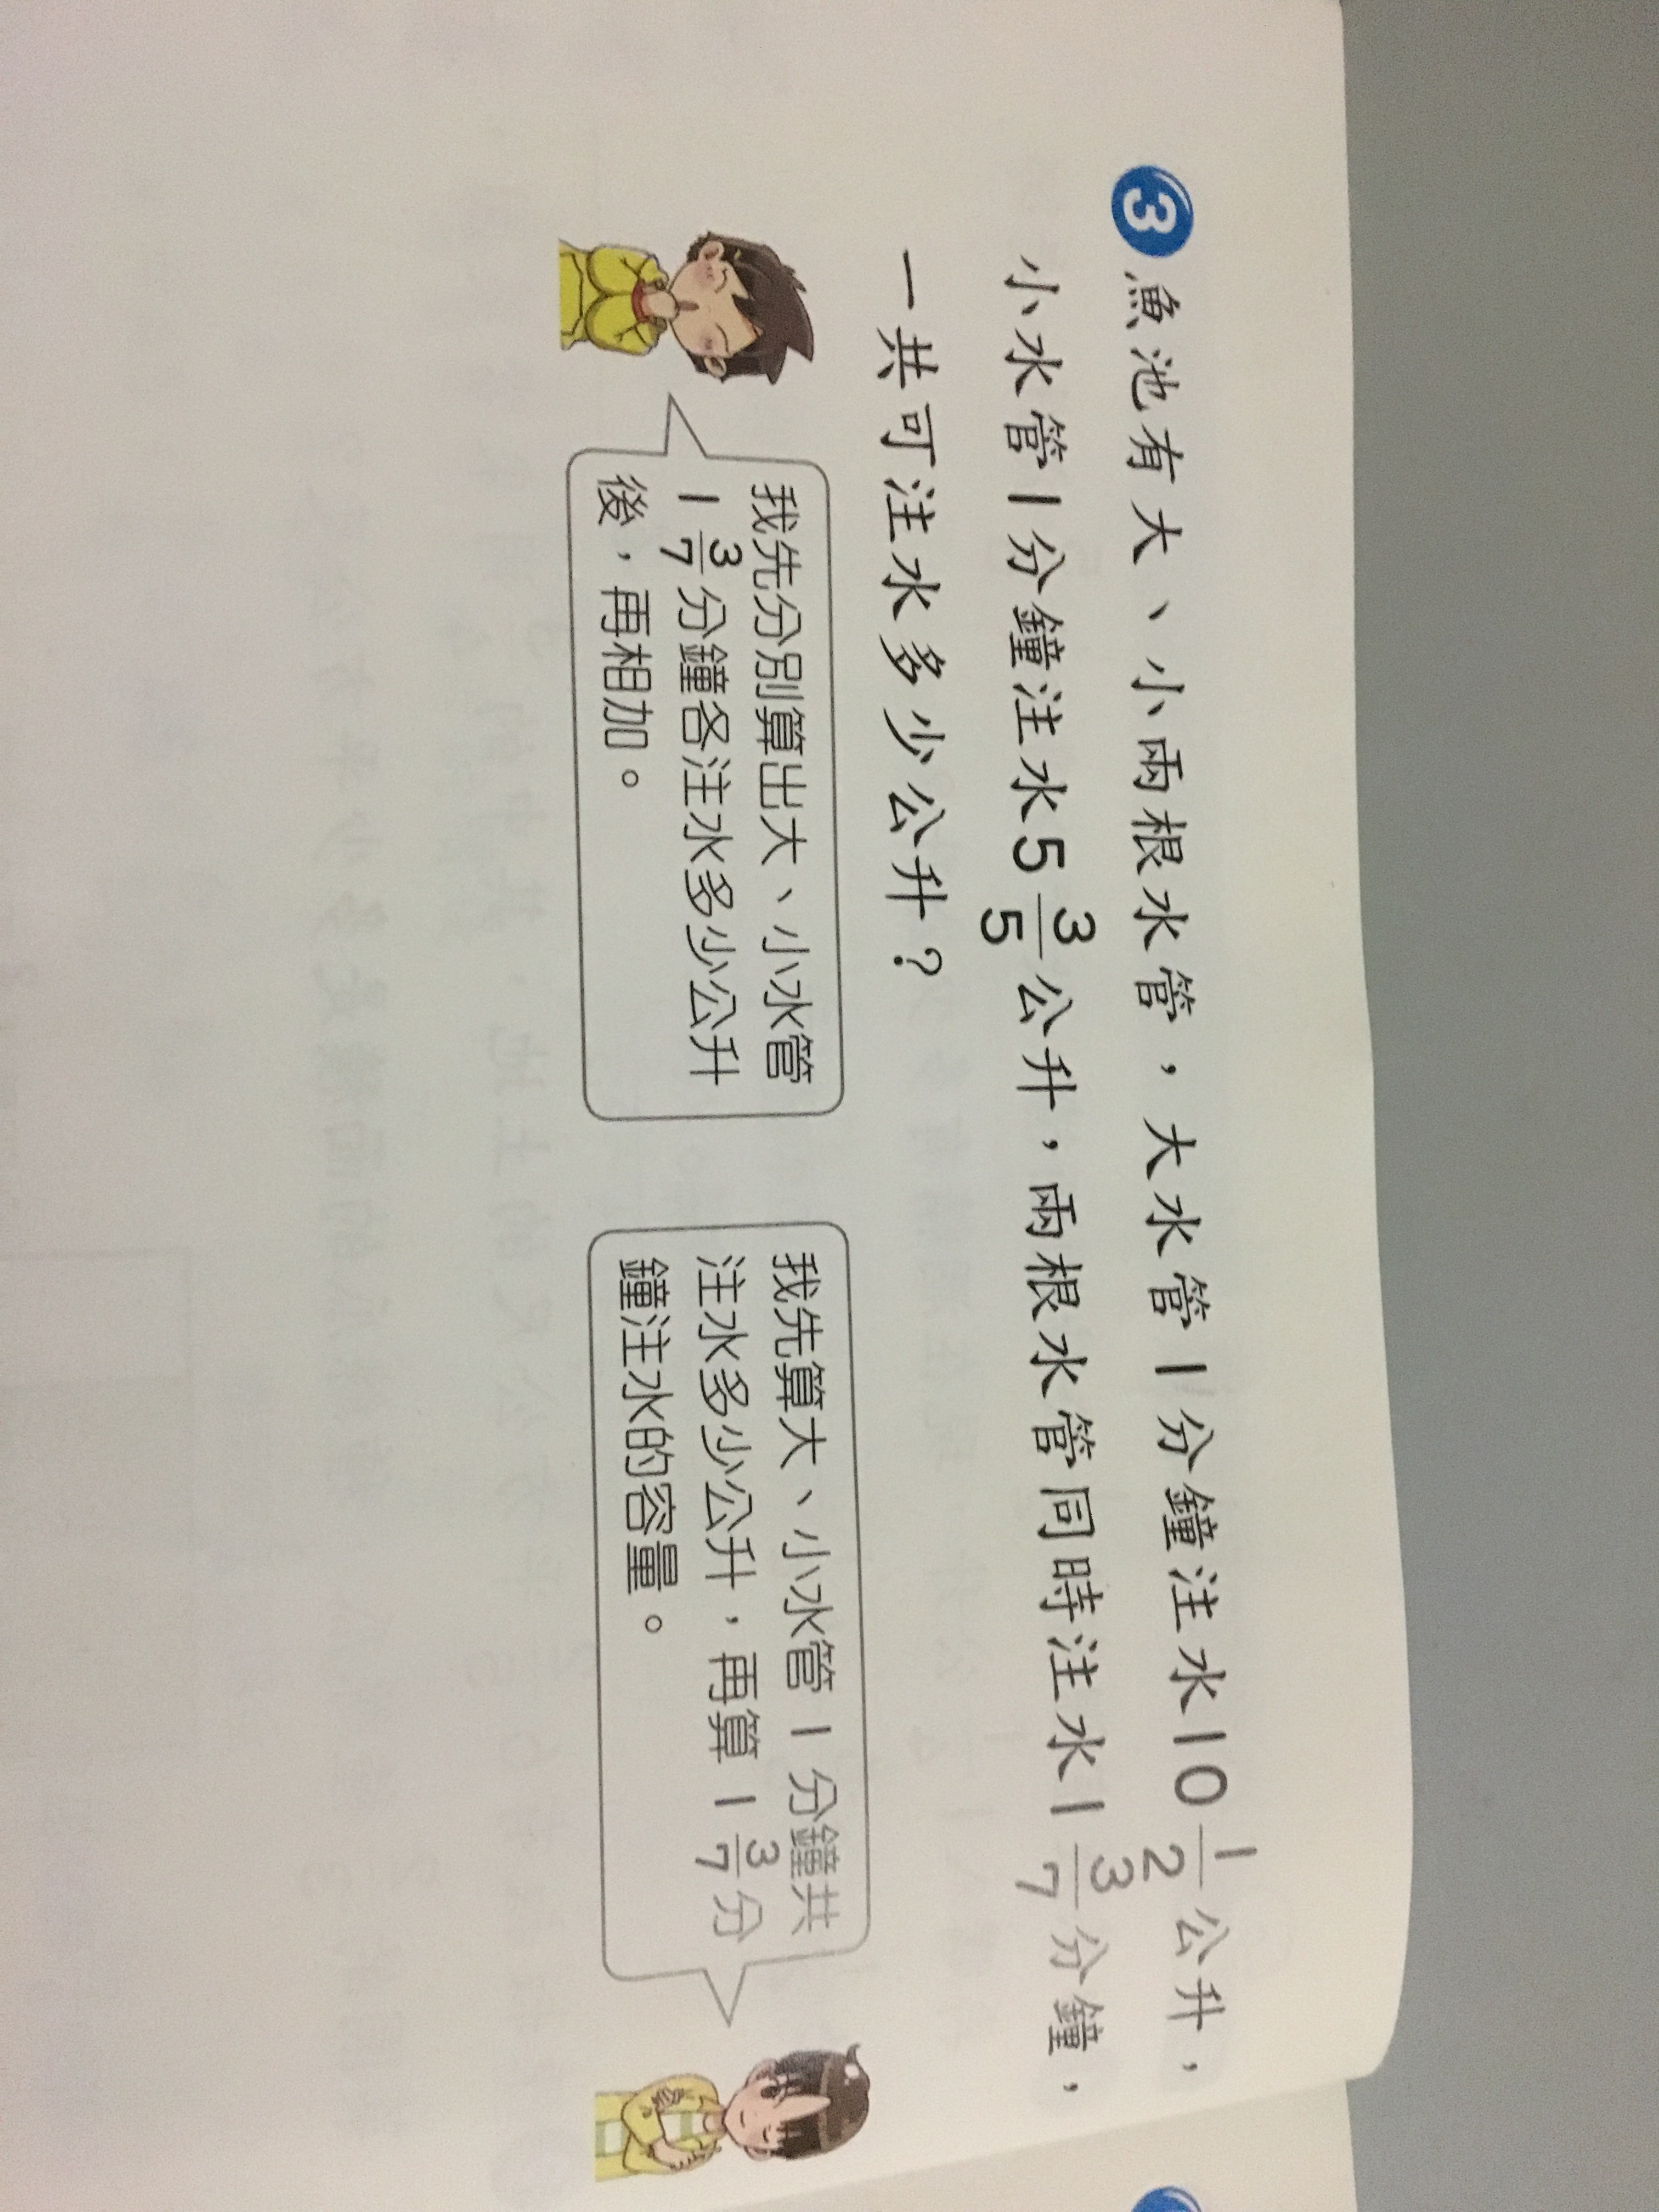 3 魚池有大、小兩根水管，大水管1分鐘注水10 1/2 公升，
小水管1分鐘注水5 3/5 公升，兩根水管同時注水1 3/7 分鐘，
一共可注水多少公升？
我先分別算出大、小水管
1 3/7 分鐘各注水多少公升
後，再相加。
我先算大、小水管1分鐘共
注水多少公升，再算1 3/7 分
鐘注水的容量。